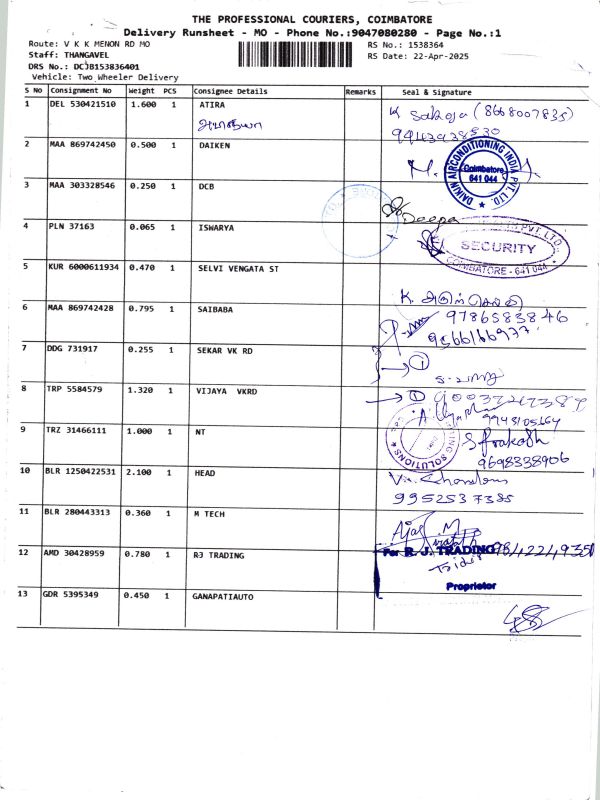 THE PROFESSIONAL COURIERS, COIMBATORE
Delivery Runsheet - MO - Phone No.:9047080280 - Page No.:1
Route: V K K MENON RD MO
RS No.: 1538364
Staff: THANGAVEL
RS Date: 22-Apr-2025
DRS No.: DCJB153836401
Vehicle: Two Wheeler Delivery
S No Consignment No Weight PCS Consignee Details Remarks Seal & Signature
1 DEL 530421510 1.600 1 ATIRA
K Sakoja (8668007835)
9943938830
2 MAA 869742450 0.500 1 DAIKEN
DAIKIN AIRCONDITIONING INDIA PVT. LTD.
Coimbatore
641 044
3 MAA 303328546 0.250 1 DCB
Deepa
4 PLN 37163 0.065 1 ISWARYA
PVT. LTD.
SECURITY
COIMBATORE - 641 044
5 KUR 6000611934 0.470 1 SELVI VENGATA ST
K. அருள் செல்வி
9786583846
6 MAA 869742428 0.795 1 SAIBABA
9566166977
7 DDG 731917 0.255 1 SEKAR VK RD
→ ①
8 TRP 5584579 1.320 1 VIJAYA VKRD
→ ①
9943105164
9 TRZ 31466111 1.000 1 NT
SOLUTIONS
S Prakash
9698338906
10 BLR 1250422531 2.100 1 HEAD
9952537385
11 BLR 280443313 0.360 1 M TECH
Ajay M
12 AMD 30428959 0.780 1 RJ TRADING
For R. J. TRADING
9842249351
Proprietor
13 GDR 5395349 0.450 1 GANAPATIAUTO